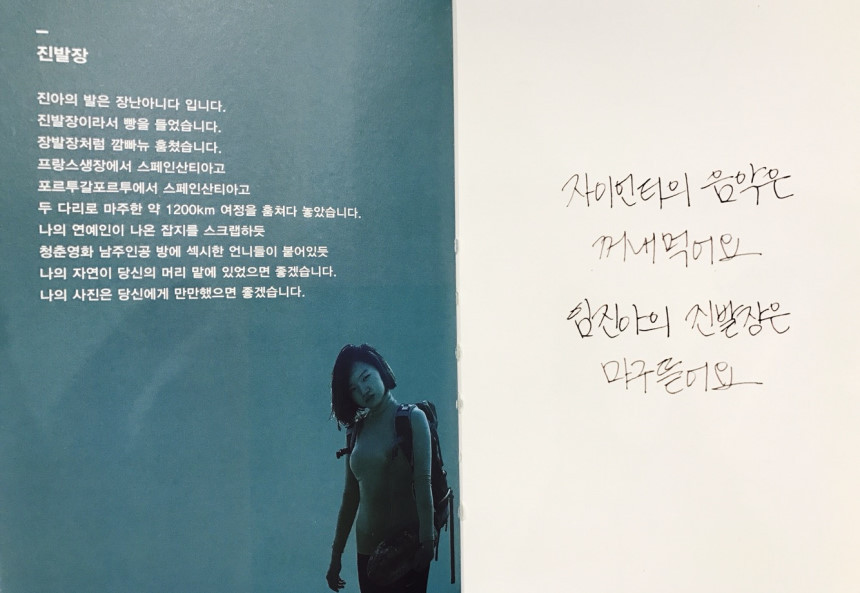 진발장
진아의 발은 장난아니다 입니다.
진발장이라서 빵을 들었습니다.
장발장처럼 깜빠뉴 훔쳤습니다.
프랑스생장에서 스페인산티아고
포르투갈포르투에서 스페인산티아고
두 다리로 마주한 약 1200km 여정을 훔쳐다 놓았습니다.
나의 연예인이 나온 잡지를 스크랩하듯
청춘영화 남주인공 방에 섹시한 언니들이 붙어있듯
나의 자연이 당신의 머리 맡에 있었으면 좋겠습니다.
나의 사진은 당신에게 만만했으면 좋겠습니다.
자이언티의 음악은
꺼내먹어요
임진아의 진발장은
마구뜯어요